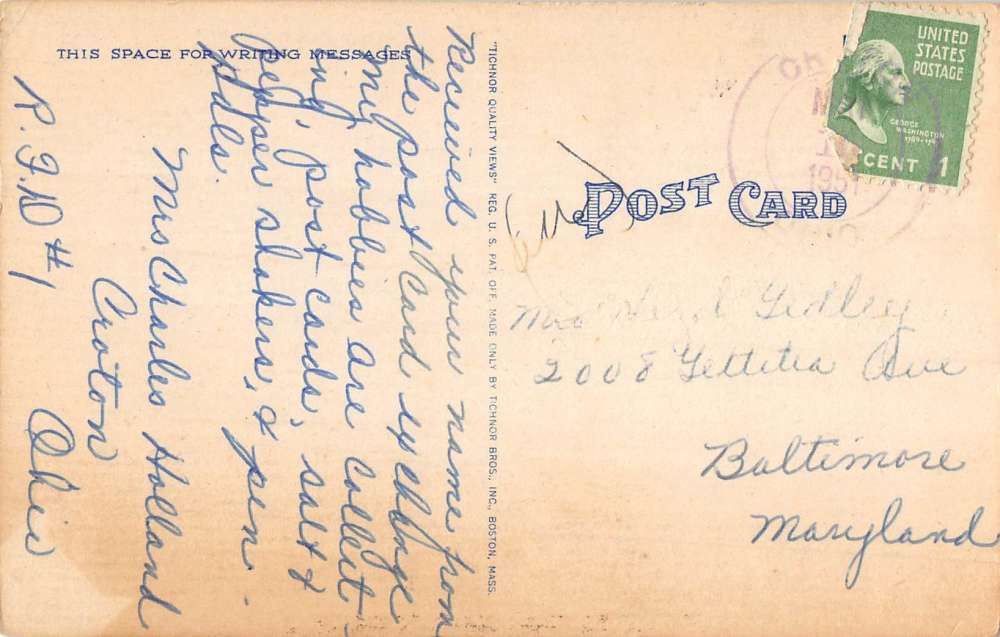 THIS SPACE FOR WRITING MESSAGES
Received your name from
the post card exchange
my hobbies are collect-
ing, post cards, salt &
pepper shakers, & pen
pals.
Mrs Charles Holland
Croton
R.F.D #1 Ohio
"TICHNOR QUALITY VIEWS" REG. U. S. PAT. OFF. MADE ONLY BY TICHNOR BROS., INC., BOSTON, MASS.
UNITED
STATES
POSTAGE
GEORGE
WASHINGTON
CENT 1
1951
POST CARD
Gidley
2008 Lettitia Ave
Baltimore
Maryland